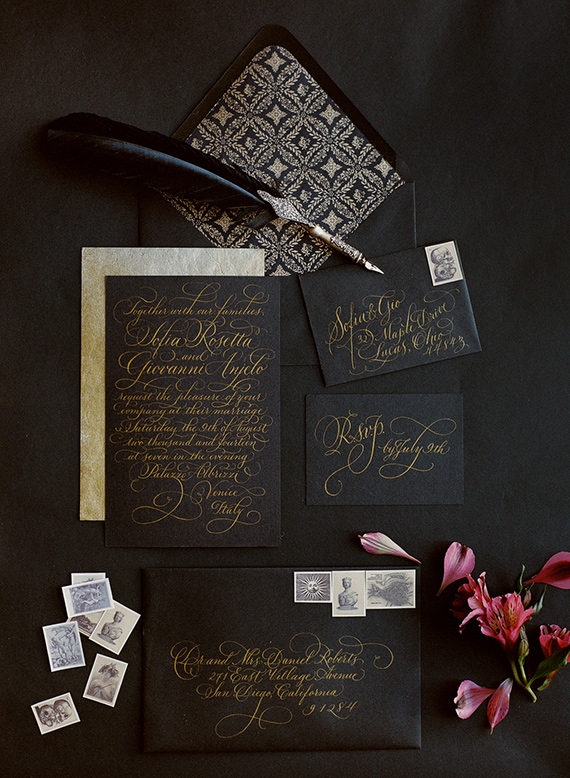 Together with our families,
Sofia Rosetta
and
Giovanni Anjelo
request the pleasure of your
company at their marriage
Saturday the 9th of August
two thousand and fourteen
at seven in the evening
Palazzo Albrizzi
Venice
Italy
Sofia & Gio
32 Maple Drive
Lucas, Ohio
44843
RSVP
by July 9th
Mr and Mrs Daniel Roberts
271 East Village Avenue
San Diego, California
91284